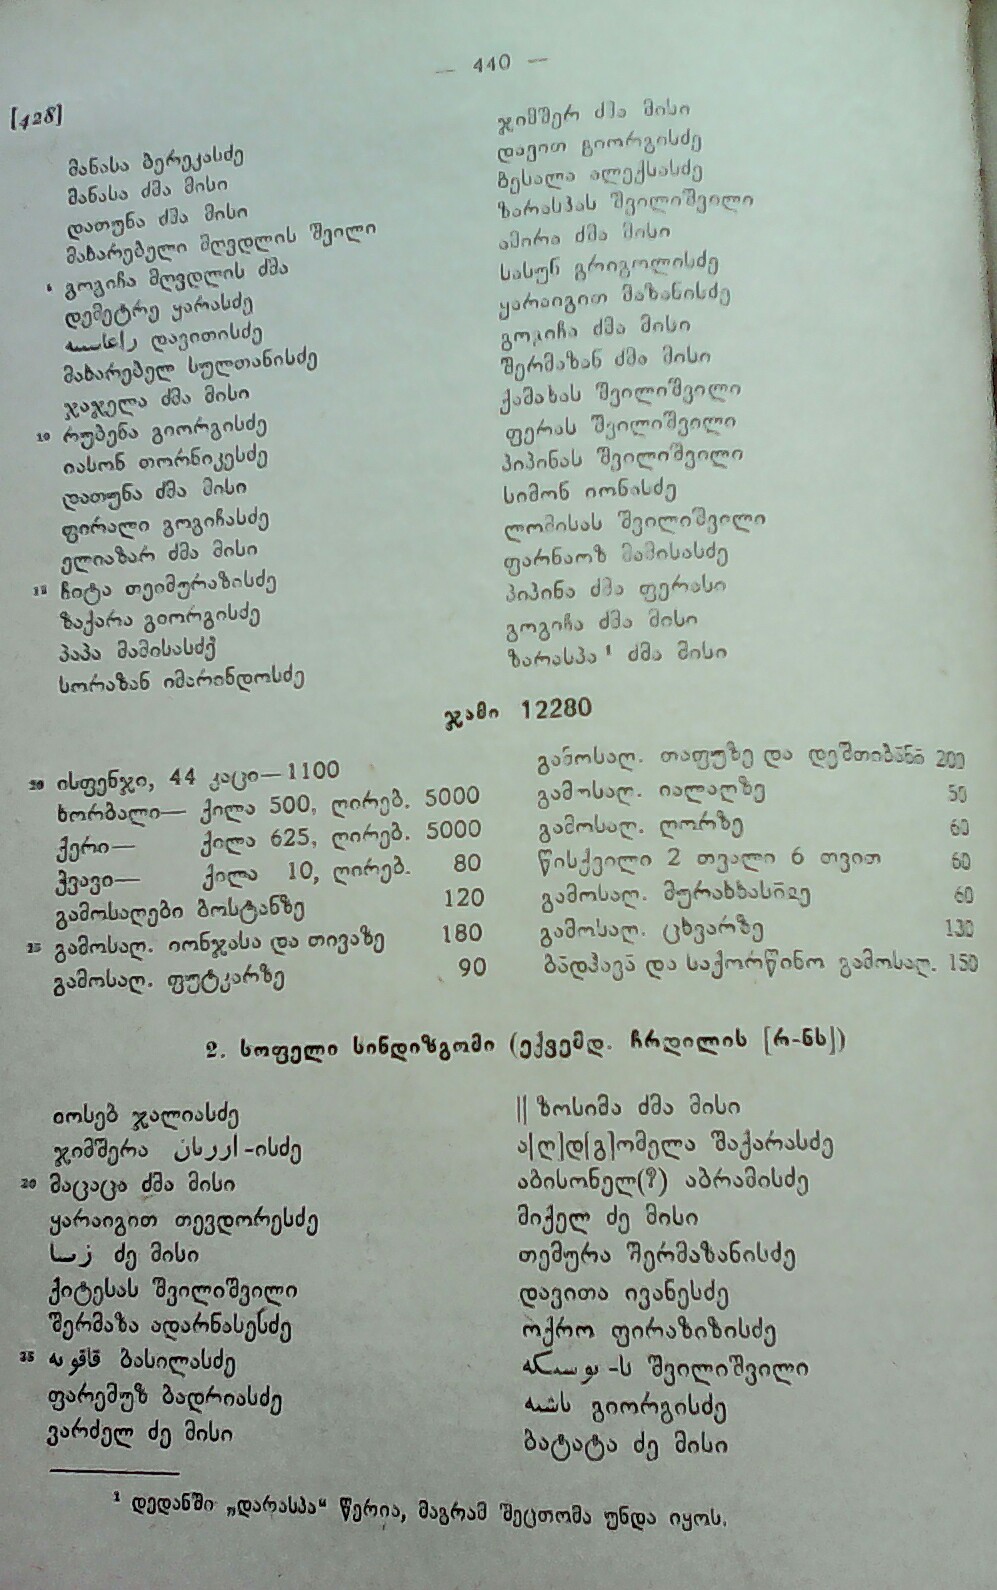 — 440 —
[428]
მანასა ბერეკასძე
მანასა ძმა მისი
დათუნა ძმა მისი
მახარებელი მღვდლის შვილი
გოგიჩა მღვდლის ძმა
დემეტრე ყარასძე
დავითისძე
მახარებელ სულთანისძე
ჯაჯელა ძმა მისი
10 რუბენა გიორგისძე
იასონ თორნიკესძე
დათუნა ძმა მისი
ფირალი გოგიჩასძე
ელიაზარ ძმა მისი
15 ჩიტა თეიმურაზისძე
ზაქარა გიორგისძე
პაპა მამისასძე
სორაზან იმარინდოსძე
ჯიმშერ ძმა მისი
დავით გიორგისძე
ბესალა ალექსასძე
ზარასპას შვილიშვილი
ამირა ძმა მისი
სასუნ გრიგოლისძე
ყარაიგით მაზანისძე
გოგიჩა ძმა მისი
შერმაზან ძმა მისი
ქამახას შვილიშვილი
ფერას შვილიშვილი
პიპინას შვილიშვილი
სიმონ იონასძე
ლომისას შვილიშვილი
ფარნაოზ მამისასძე
პიპინა ძმა ფერასი
გოგიჩა ძმა მისი
ზარასპა¹ ძმა მისი
ჯამი 12280
20 ისფენჯი, 44 კაცი—1100
ხორბალი— ქილა 500, ღირებ. 5000
ქერი— ქილა 625, ღირებ. 5000
ჭვავი— ქილა 10, ღირებ. 80
გამოსაღები ბოსტანზე 120
25 გამოსაღ. იონჯასა და თივაზე 180
გამოსაღ. ფუტკარზე 90
გამოსაღ. თაფუზე და დეშთიბანი 200
გამოსაღ. იალაღზე 50
გამოსაღ. ღორზე 60
წისქვილი 2 თვალი 6 თვით 60
გამოსაღ. 60
გამოსაღ. ცხვარზე 130
ბადჰავა და საქორწინო გამოსაღ. 150
2. სოფელი სინდიზგომი (ექვემდ. ჩრდილის [რ-ნს])
იოსებ ჯალიასძე
ჯიმშერა -ისძე
30 მაცაცა ძმა მისი
ყარაიგით თევდორესძე
ძე მისი
ქიტესას შვილიშვილი
შერმაზა ადარნასესძე
35 ბასილასძე
ფარემუზ ბადრიასძე
ვარძელ ძე მისი
|| ზოსიმა ძმა მისი
ა[ღ]დ[გ]ომელა შაქარასძე
აბისონელ(?) აბრამისძე
მიქელ ძე მისი
თემურა შერმაზანისძე
დავითა ივანესძე
ოქრო ფირაზიზისძე
-ს შვილიშვილი
გიორგისძე
ბატატა ძე მისი
¹ დედანში „დარასპა“ წერია, მაგრამ შეცთომა უნდა იყოს.